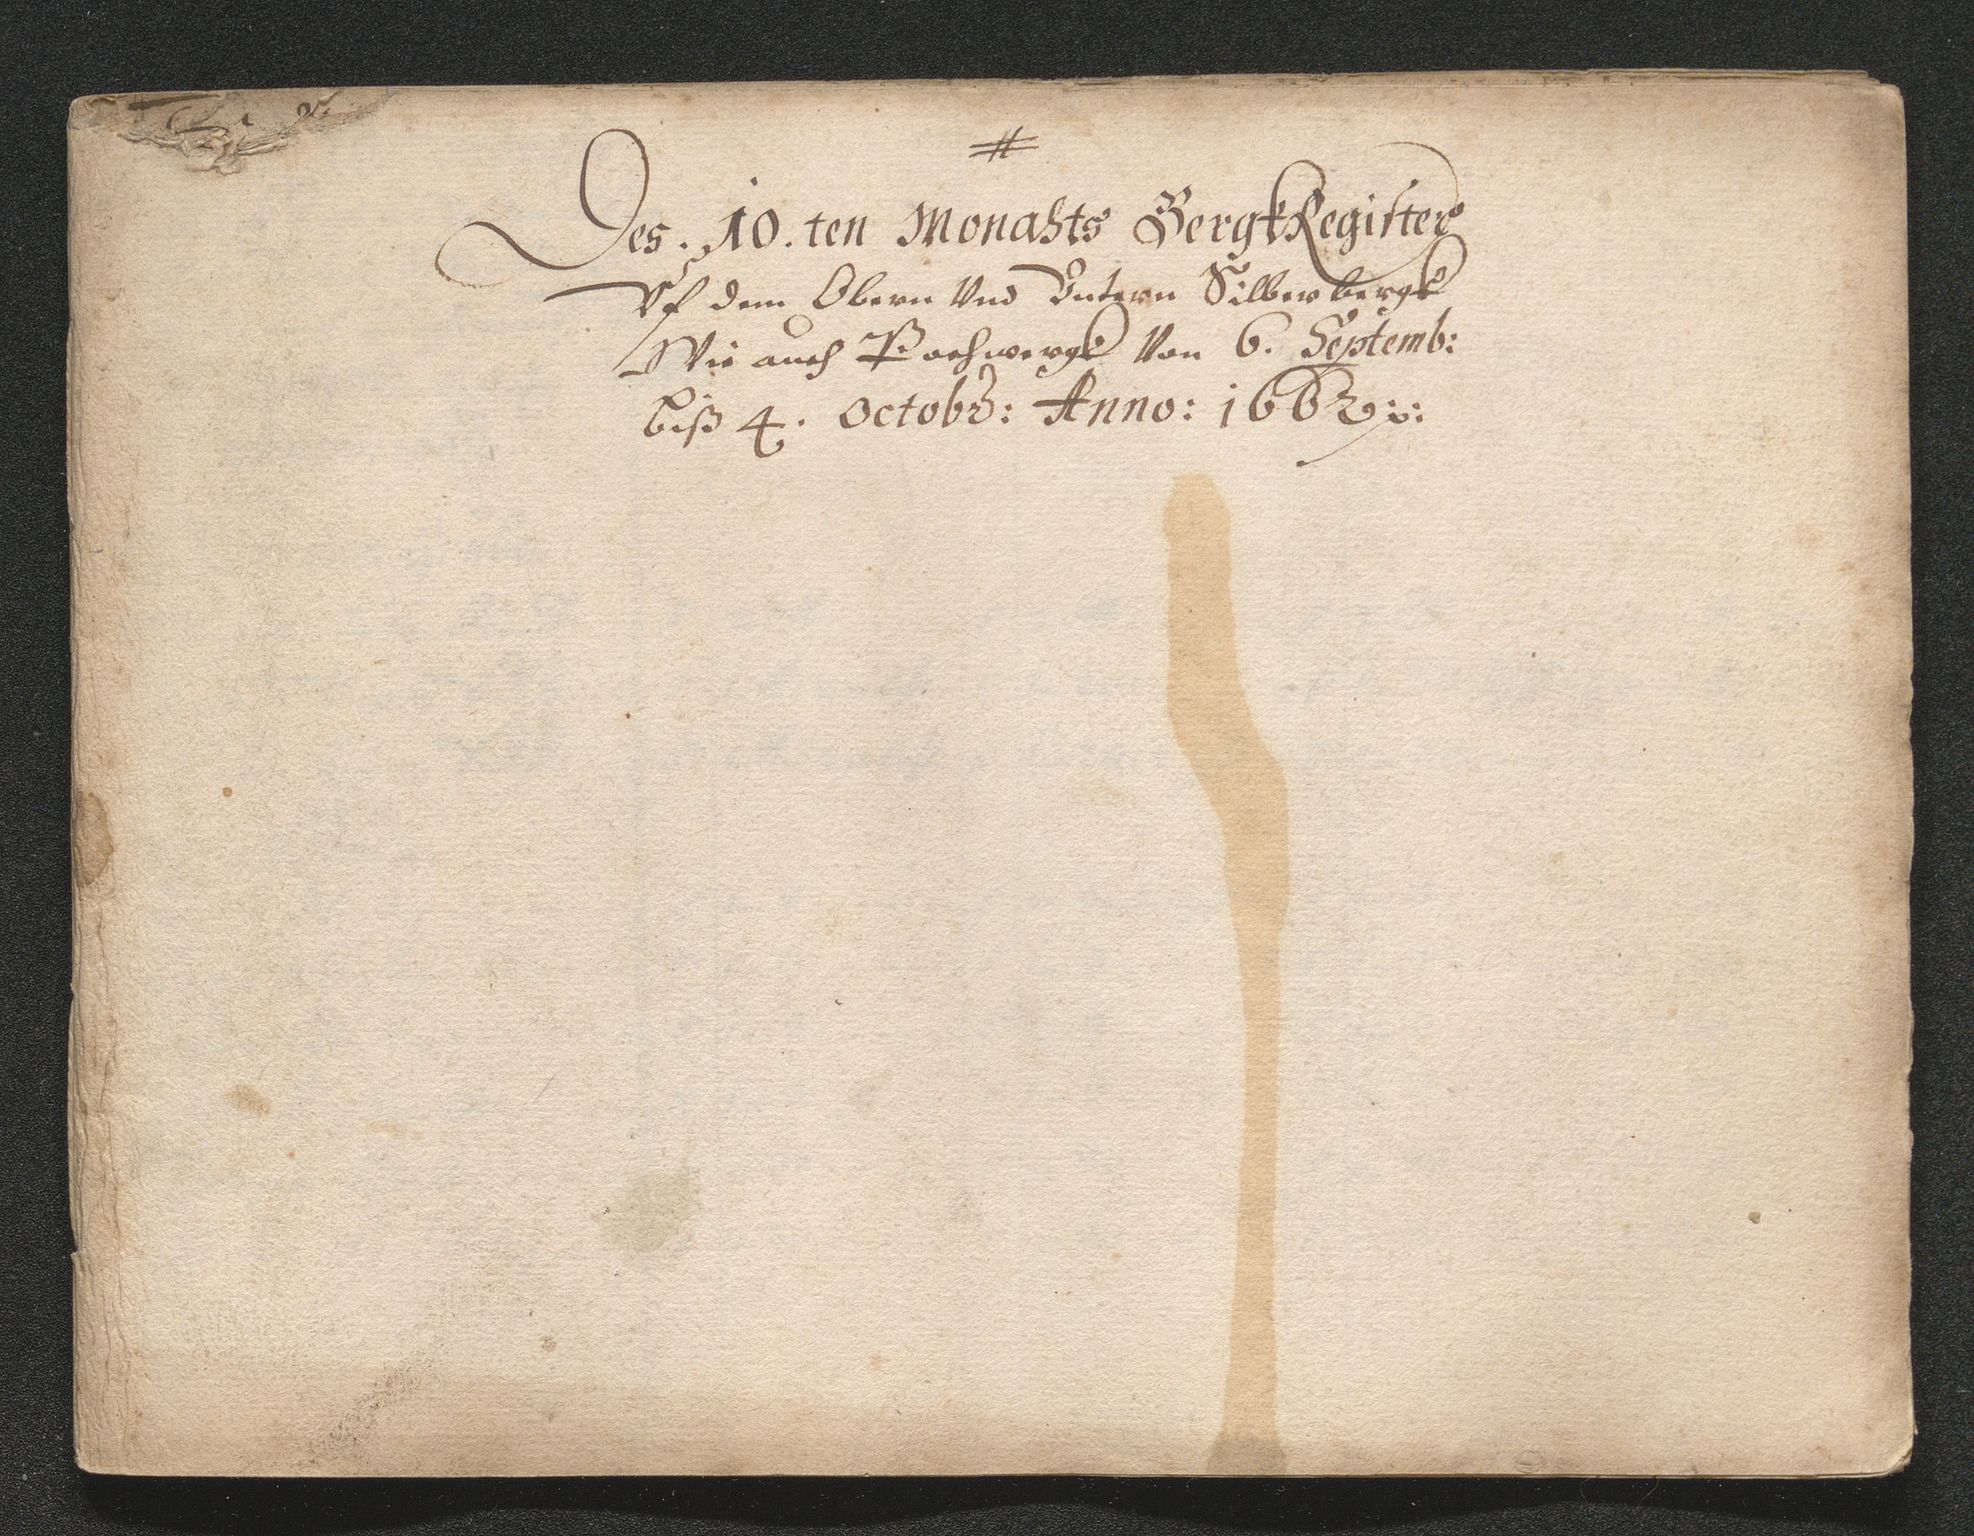 #
Des. 10. ten Monahts BergkRegister
Vf dem Obern Vnd Vntern Silberbergk
Wie auch Pochwergk Von 6. Septemb:
biß 4. Octobr: Anno: